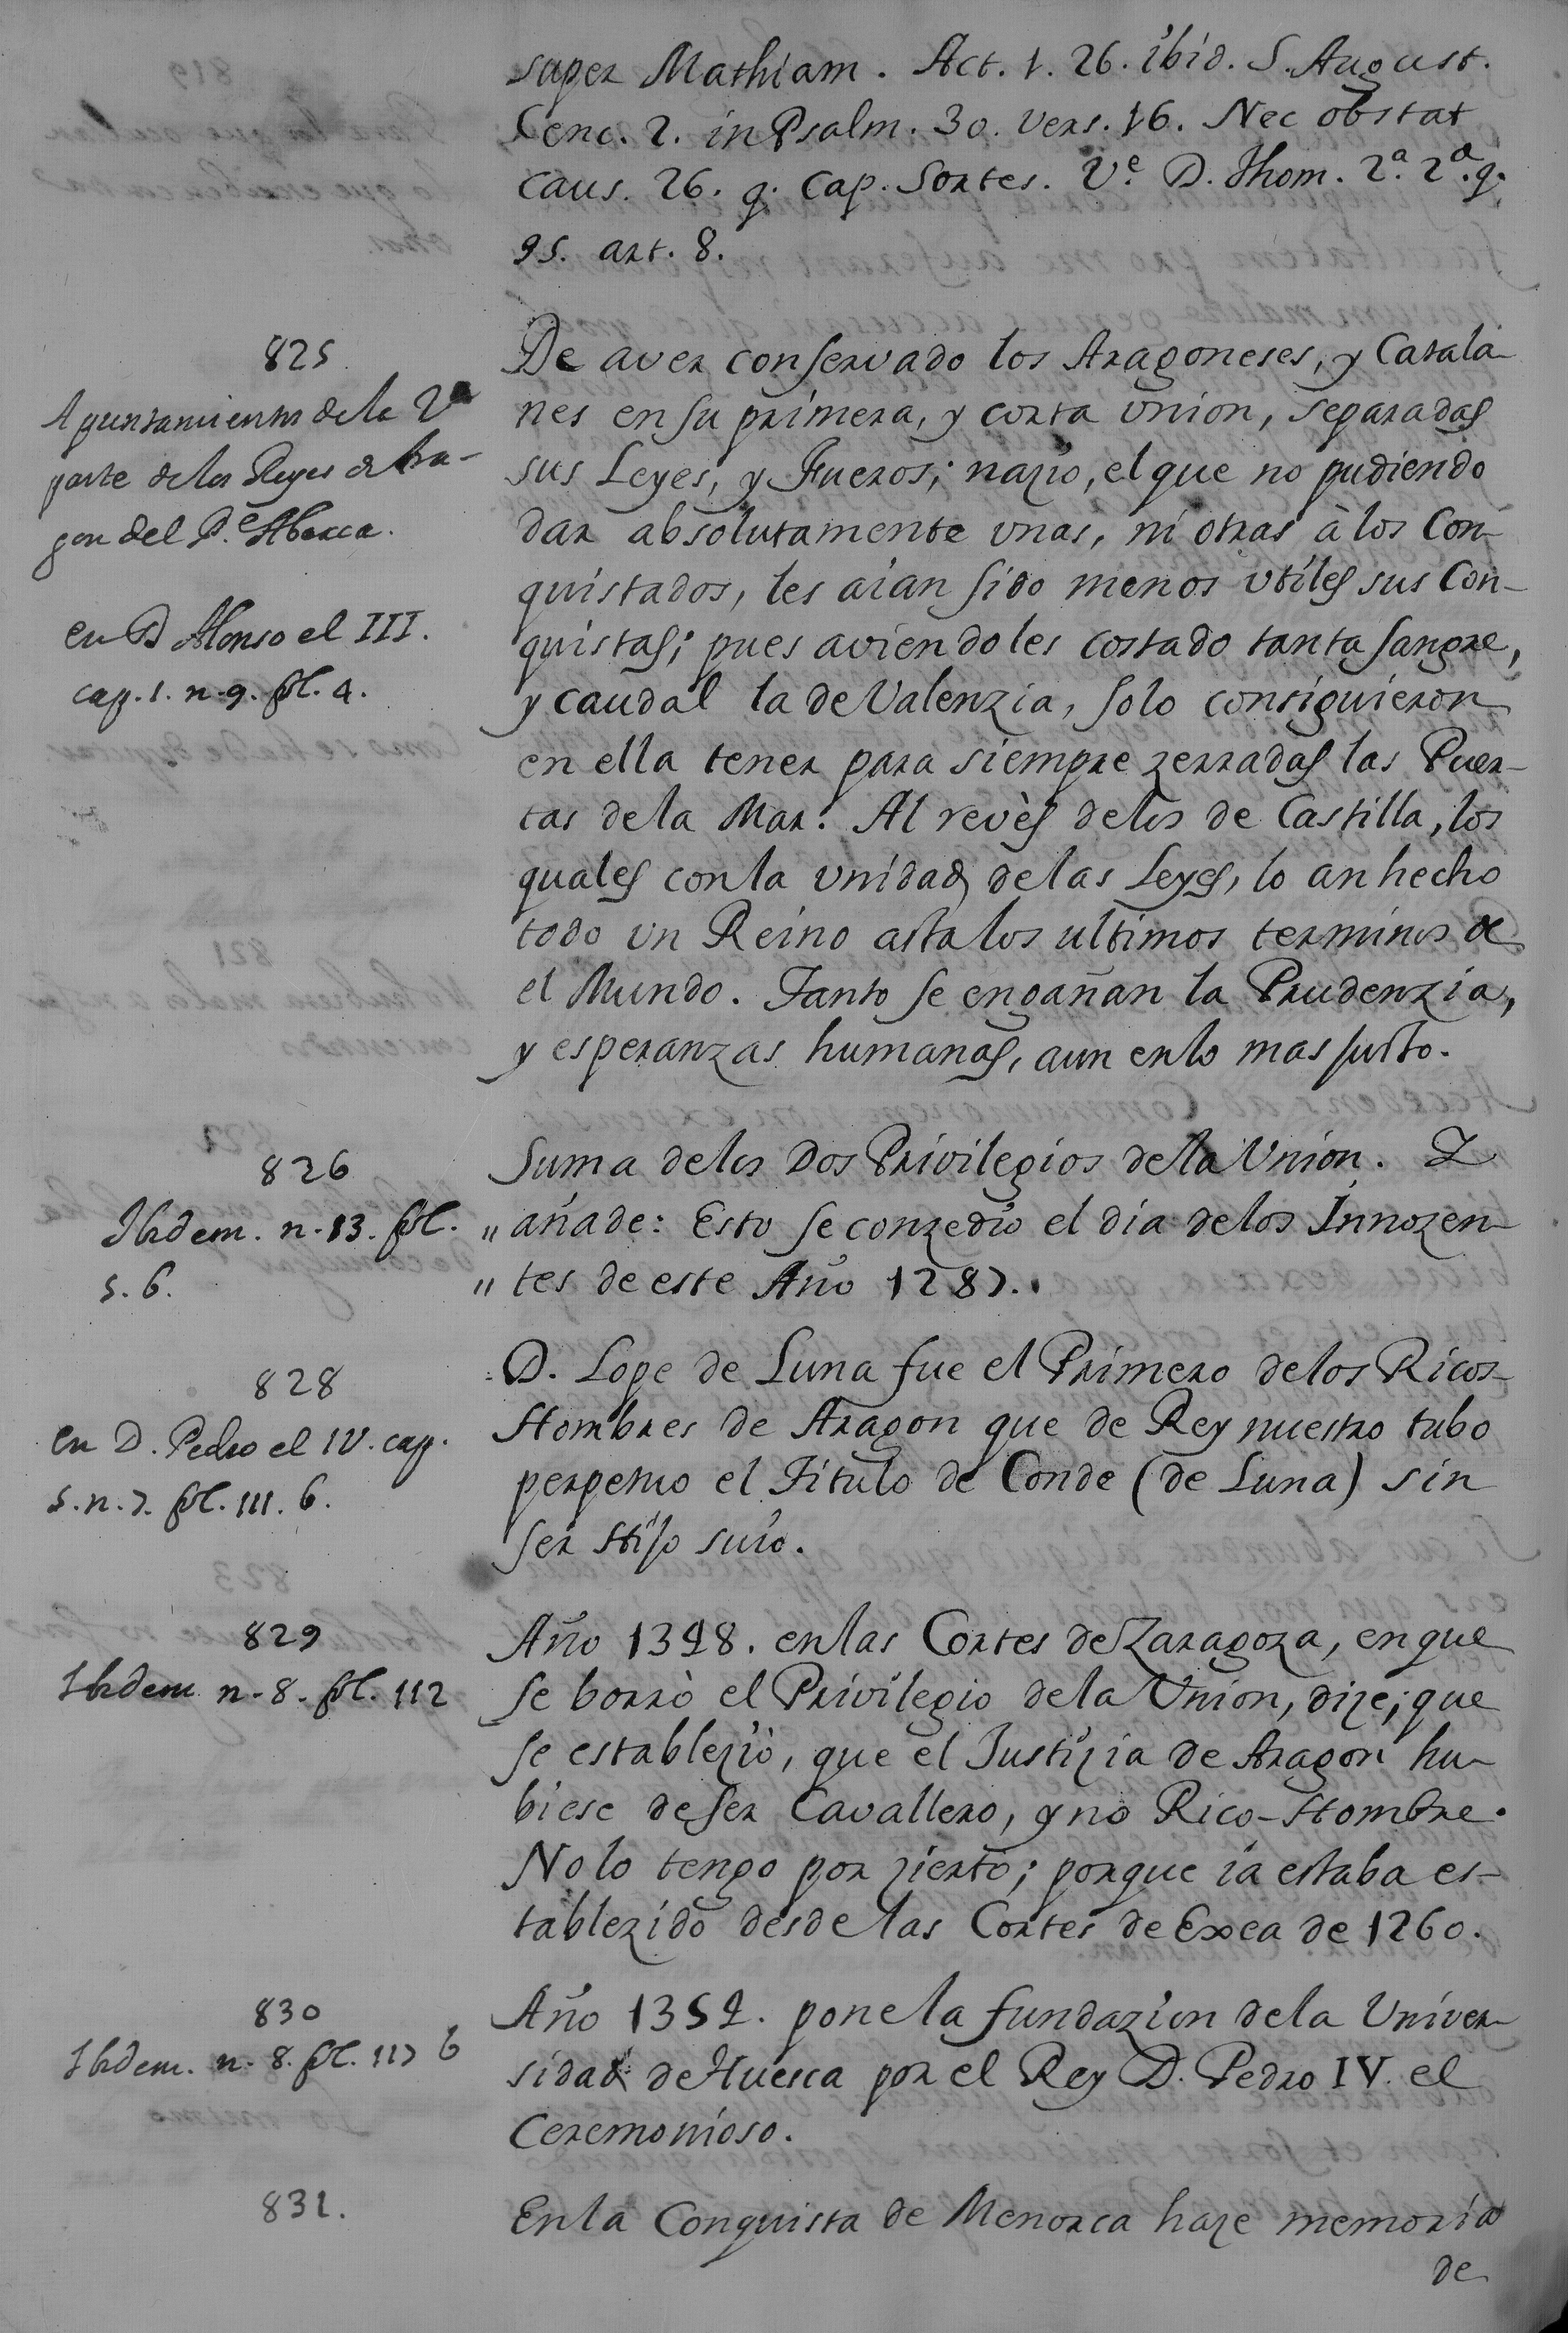 super Mathiam. Act. 1. 26. ibid. S. August.
Conc. 2. in Psalm. 30. vers. 16. Nec obstat
caus. 26. q. cap. Sortes. Ve. D. Thom. 2ª. 2ª. q.
95. art. 8.
825
Apuntamientos de la 2ª
parte de los Reyes de Ara-
gon del P.e Abarca.
en D Alonso el III.
cap. 1. n. 9. fol. 4.
De aver conservado los Aragoneses, y Catala-
nes en su primera, y corta union, separadas
sus Leyes, y Fueros; nazio, el que no pudiendo
dar absolutamente unas, ni otras à los Con-
quistados, les aian sido menos utiles sus Con-
quistas; pues aviendoles costado tanta sangre,
y caudal la de Valenzia, solo consiguieron
en ella tener para siempre zerradas las Puer-
tas de la Mar. Al revès delos de Castilla, los
quales con la unidad de las Leyes, lo an hecho
todo un Reino asta los ultimos terminos de
el Mundo. Tanto se engañan la Prudenzia,
y esperanzas humanas, aun en lo mas justo.
826
Ibidem. n. 13. fol.
5. b.
Suma delos Dos Privilegios dela Union. I
" añade: Esto se conzediò el dia delos Innozen-
" tes de este Año 1287.
828
en D. Pedro el IV. cap.
5. n. 7. fol. 111. b.
D. Lope de Luna fue el Primero delos Ricos-
Hombres de Aragon que de Rey nuestro tubo
perpetuo el Titulo de Conde (de Luna) sin
ser Hijo suio.
829
Ibidem n. 8. fol. 112
Año 1348. en las Cortes de Zaragoza, en que
se borrò el Privilegio dela Union, dize; que
se estableziò, que el Justizia de Aragon hu-
biese de ser Cavallero, y no Rico-Hombre.
No lo tengo por zierto; porque ia estaba es-
tablezido desde las Cortes de Exea de 1260.
830
Ibidem. n. 8. fol. 117 b
Año 1354. pone la fundazion dela Univer-
sidad de Huesca por el Rey D. Pedro IV. el
Ceremonioso.
831.
En la Conquista de Menorca haze memoria
de